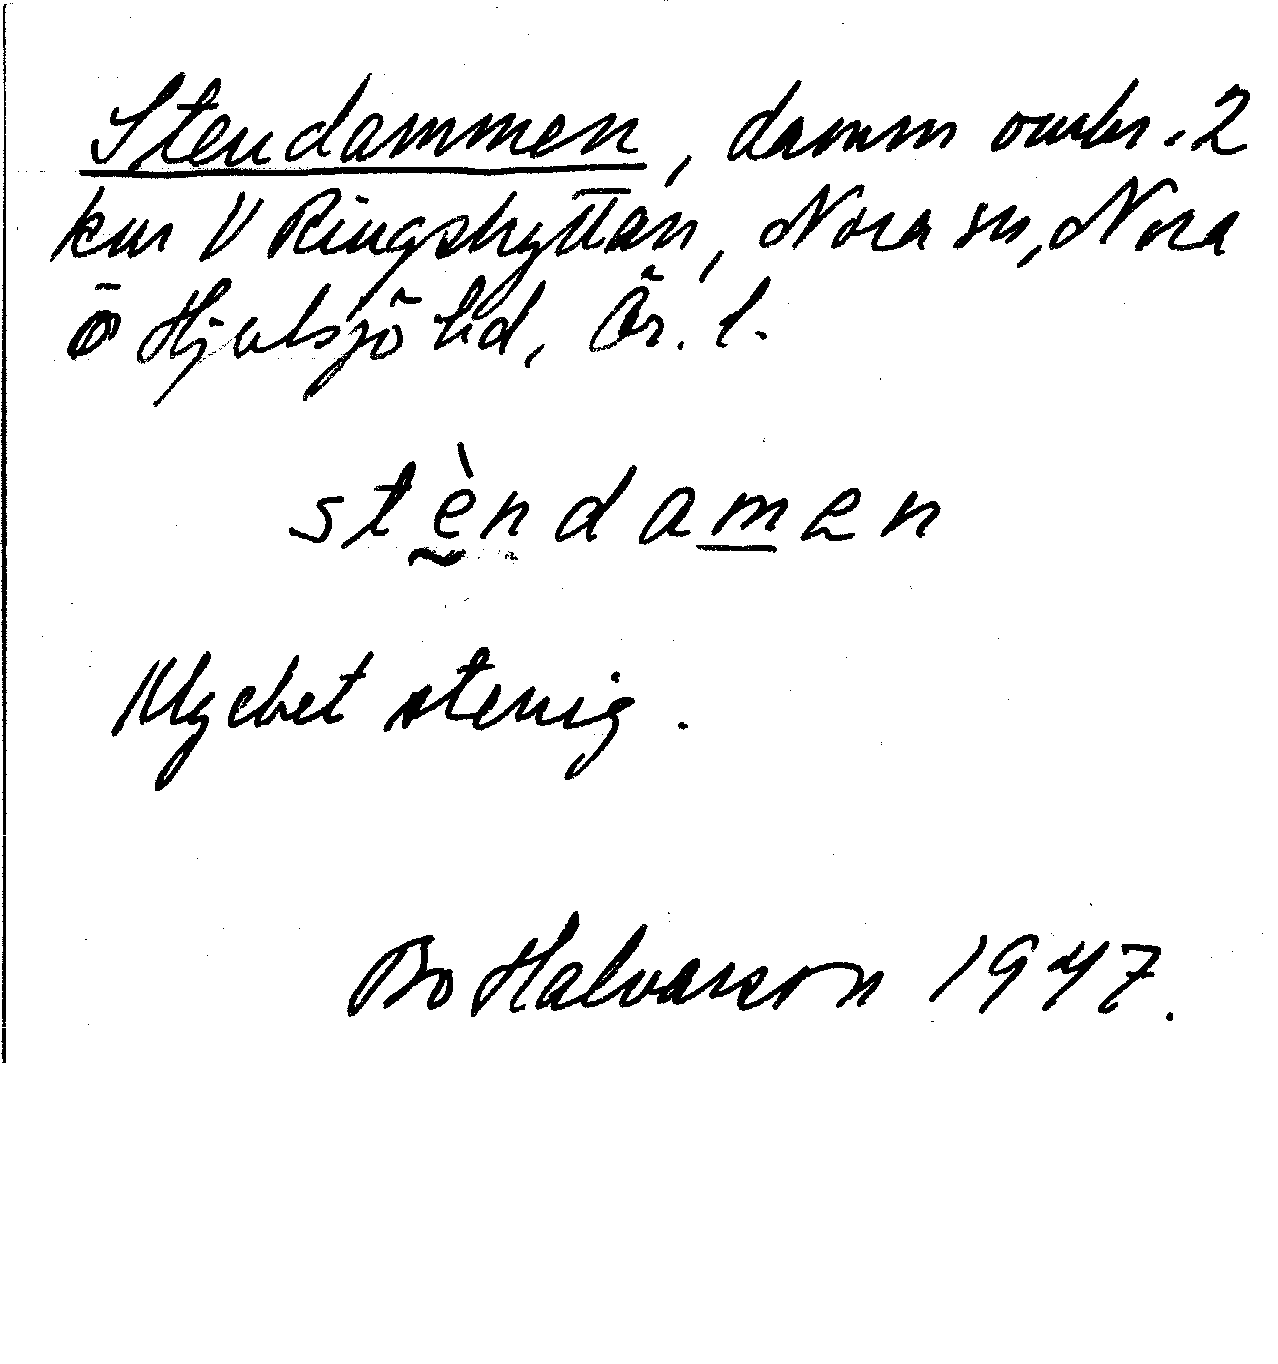 Stendammen, damm omkr. 2
km V Ringshyttan, Nora sn, Nora
o Hjulsjö hd, Ör. l.
stèndamen
Mycket stenig.
Bo Halvarson 1947.